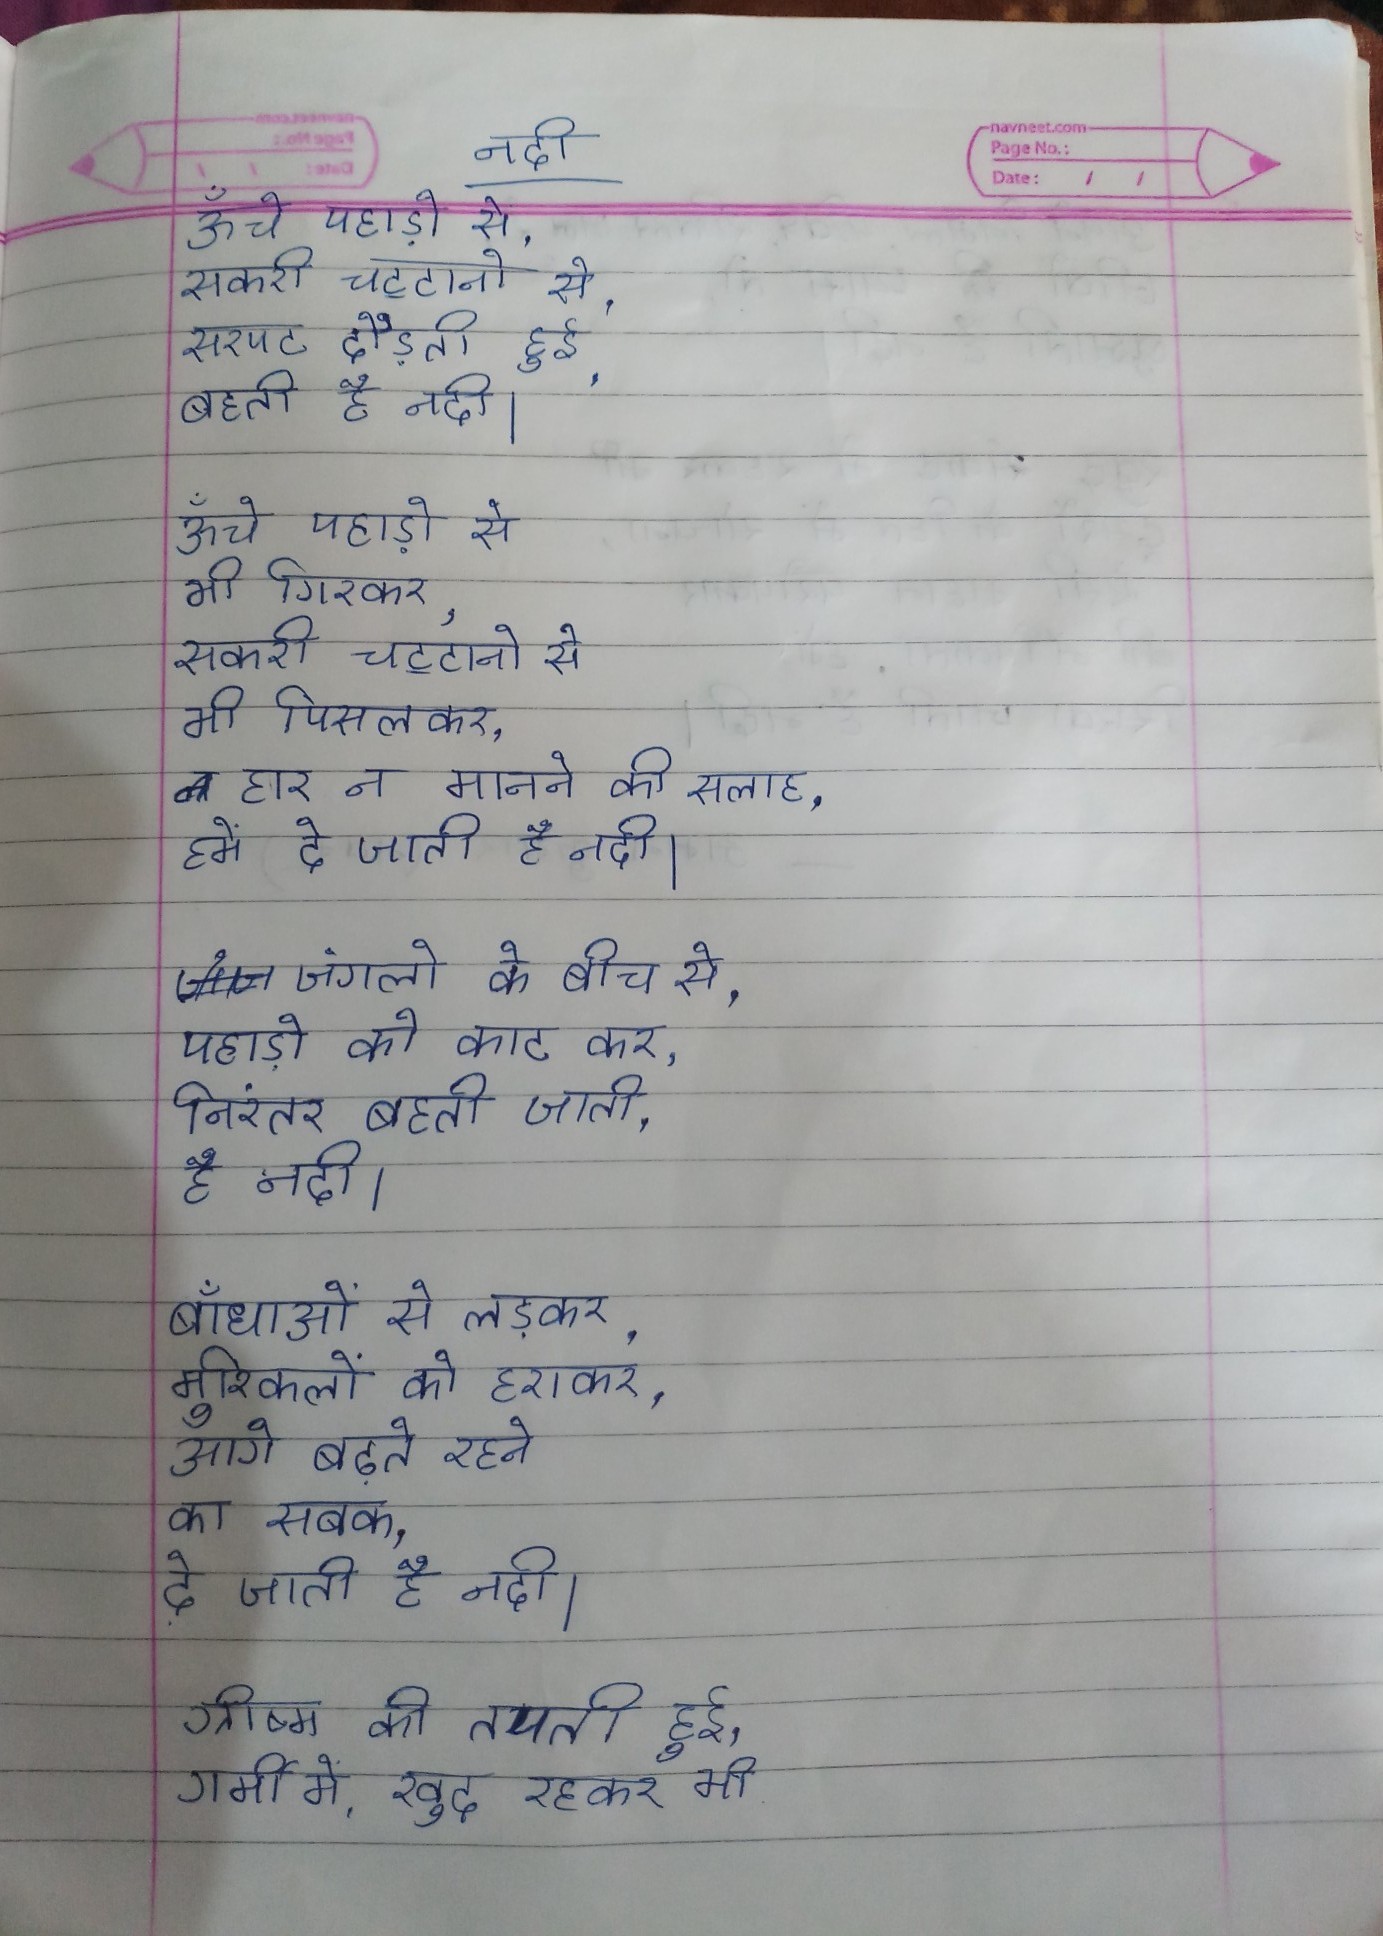 navneet.com
Page No.:
Date: / /
नदी
ऊँचे पहाड़ो से,
सकरी चट्टानो से,
सरपट दौड़ती हुई,
बहती है नदी।
ऊँचे पहाड़ो से
भी गिरकर,
सकरी चट्टानो से
भी पिसलकर,
हार न मानने की सलाह,
हमें दे जाती है नदी।
जंगलो के बीच से,
पहाड़ो को काट कर,
निरंतर बहती जाती,
है नदी।
बाँधाओं से लड़कर,
मुश्किलों को हराकर,
आगे बढ़ते रहने
का सबक,
दे जाती है नदी।
ग्रीष्म की तपती हुई,
गर्मी में, खुद रहकर भी